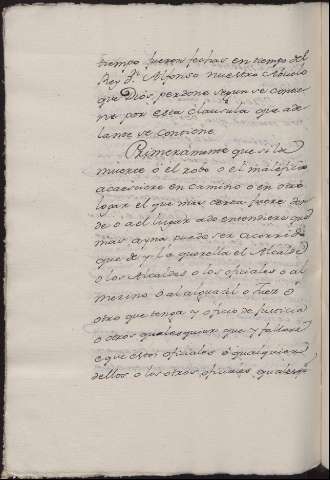 tiempo fueron fechas en tiempo del
Rey Dn. Alfonso nuestro Abuelo
que Dios perdone segun se contie
ne por esta clausula que ade
lante se contiene
Primeramente que si la
muerte ó el robo o el maleficio
acaesciere en camino o en otro
logar el que mas cerca fuere den
de ó a el lugar ado entendiere que
mas ayna puede ser acorrido
que de y la querella el Alcalde
o los Alcaldes o los oficiales o al
merino o al alguacil o Juez ó
otro que tenga y oficio de justicia
o otros qualesquier que y fallare
e que estos oficiales ó qualquiera
dellos o los otros oficiales qualesqr